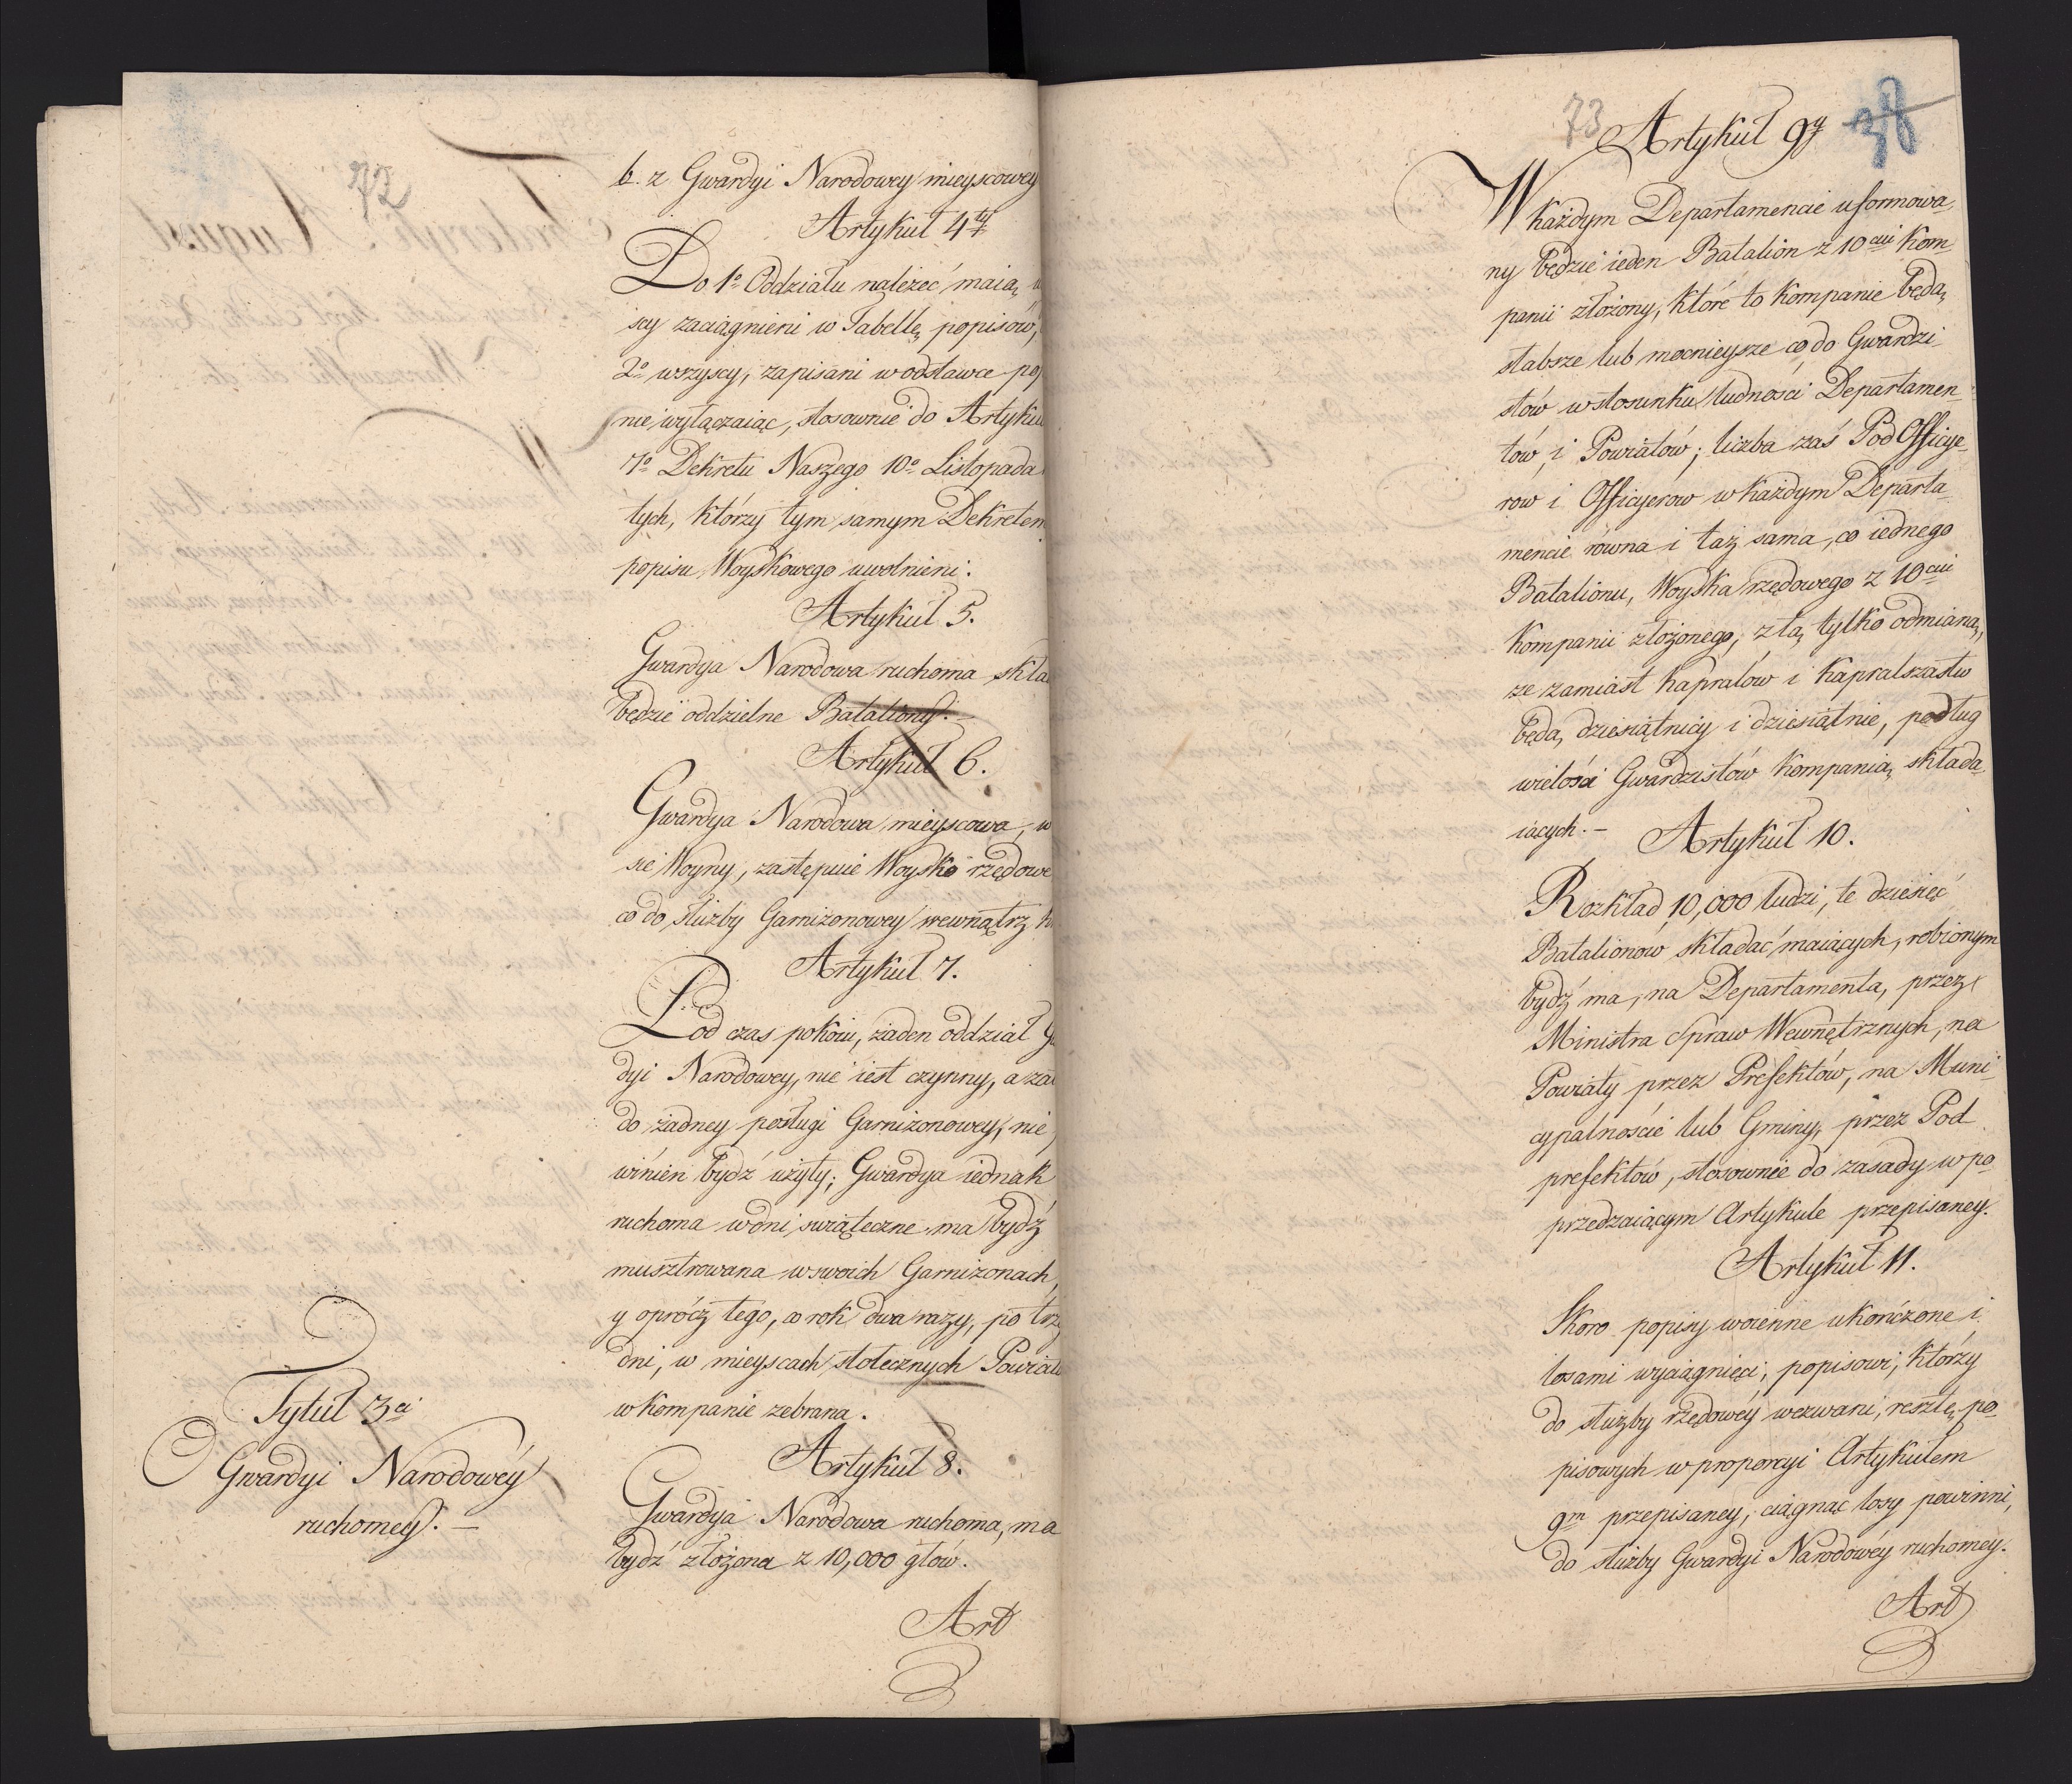 72
b. z Gwardyi Narodowey mieyscowey
Artykuł 4ty
Do 1o Oddziału należeć maią,
scy zaciągnieni w Tabellę popisów,
2o wszyscy, zapisani w odstawce
nie wyłączaiąc, stosownie do
7o Dekretu Naszego 10o Listopada
tych, którzy tym samym Dekretem
popisu Woyskowego uwolnieni.
Artykuł 5.
Gwardya Narodowa ruchoma
będzie oddzielne Bataliony. –
Artykuł 6.
Gwardya Narodowa mieyscowa, w
sie Woyny, zastępuie Woysko
co do służby Garnizonowey wewnątrz
Artykuł 7.
Pod czas pokoiu, żaden oddział
dyi Narodowey, nie iest czynny, a
do żadney posługi Garnizonowey, nie
winien bydź użyty; Gwardya iednak
ruchoma w dni swiąteczne ma bydź
musztrowana w swoich Garnizonach,
y oprócz tego, co rok dwa razy, po
dni, w mieyscach stołecznych
w kompanie zebrana.
Tytuł 3ci
O Gwardyi Narodowéy
ruchomey. –
Artykuł 8.
Gwardya Narodowa ruchoma, ma
bydź złożona z 10,000 głów.
Art
73
38
Artykuł 9y
W każdym Departamencie uformowa-
ny będzie ieden Batalion z 10ciu Kom-
panii złożony, które to kompanie będą,
słabsze lub mocnieysze co do Gwardzi-
stów w stosunku ludności Departamen-
tów, i Powiatów; liczba zaś Pod Officye-
row i Officyerow w każdym Departa-
mencie równa i taż sama, co iednego
Batalionu, Woyska rzędowego z 10ciu
Kompanii złożonego, z tą tylko odmianą,
ze zamiast kapralów i kapralszastw
będą, dziesiątnicy i dziesiątnie, podług
wielości Gwardzistów kompanią składa-
iących. –
Artykuł 10.
Rozkład 10,000 ludzi, te dziesięć
Batalionów składać maiących, robionym
bydź ma, na Departamenta, przez
Ministra Spraw Wewnętrznych, na
Powiaty przez Prefektów, na Muni-
cypalnoście lub Gminy, przez Pod
prefektów, stosownie do zasady w po-
przedzaiącym Artykule przepisaney.
Artykuł 11.
Skoro popisy woienne ukończone i
losami wyciągnięci, popisowi, którzy
do służby rzędowéy wezwani, resztę po-
pisowych w proporcyi Artykułem
9m przepisaney, ciągnąć losy powinni,
do służby Gwardyi Narodowéy ruchomey.
Art